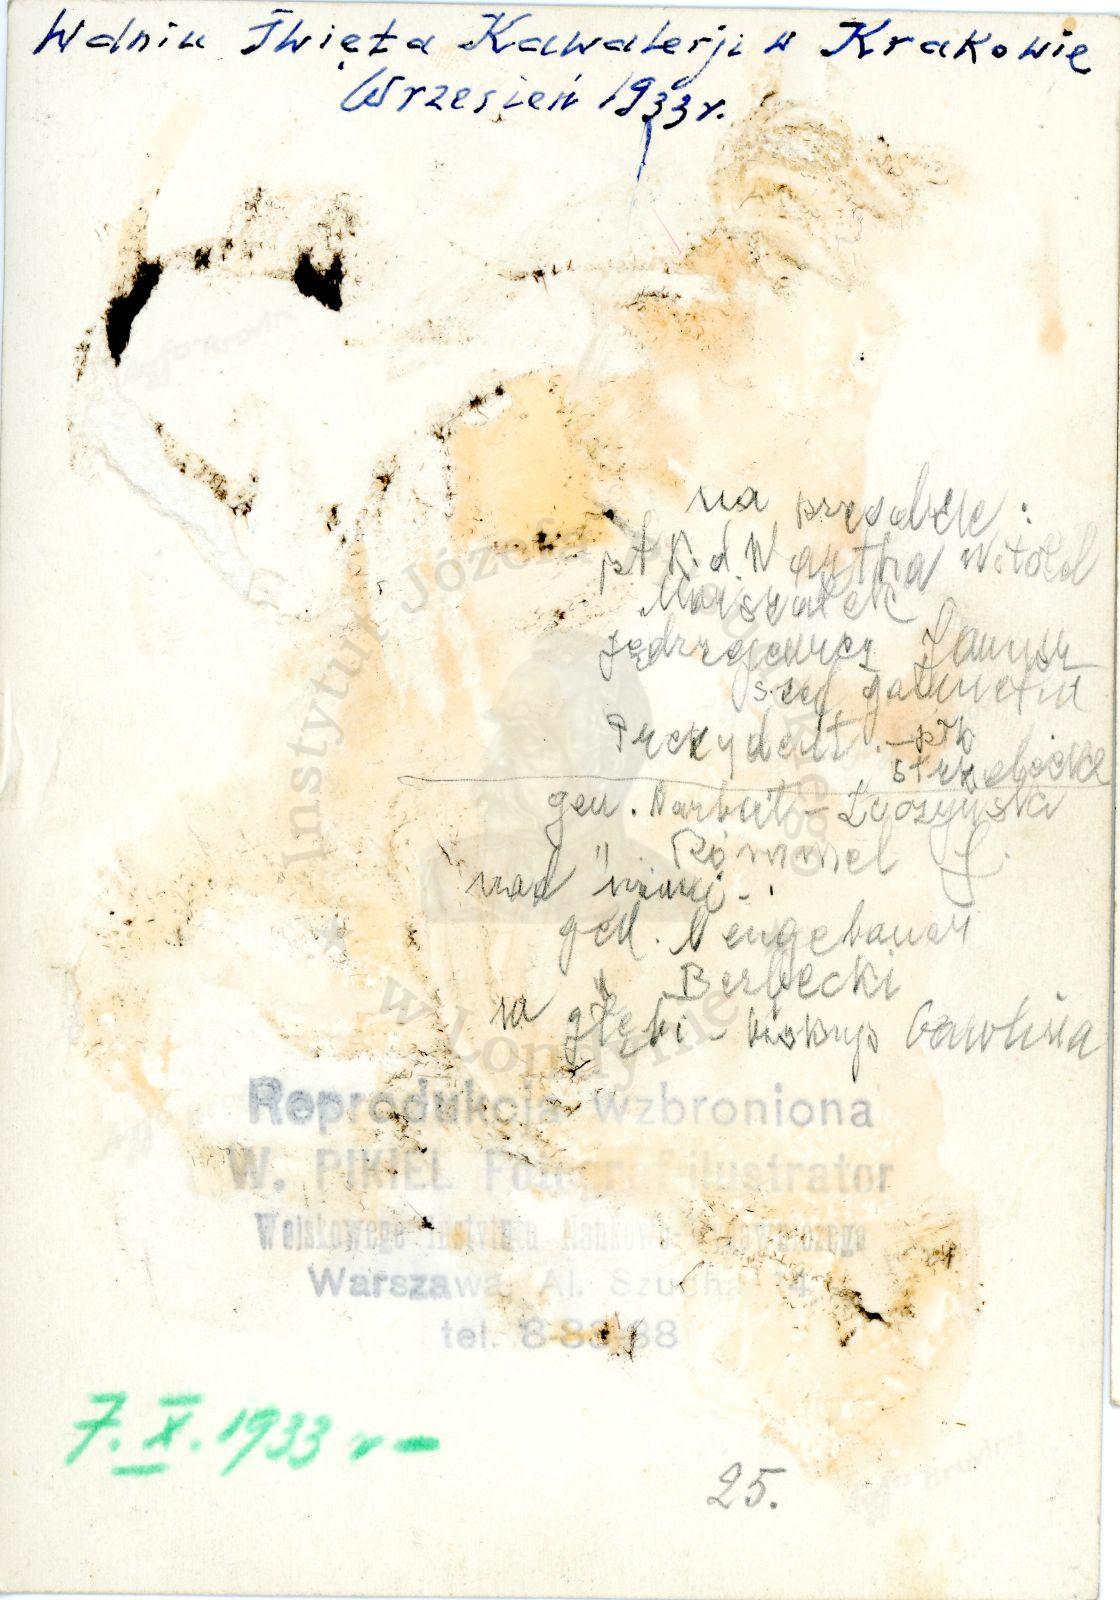 W dniu Święta Kawalerji w Krakowie
Wrzesień 1933 r.
na przodzie:
płk. d. Wartha Witold
Marszałek
Jędrzejewicz Janusz
szef gabinetu
Prezydent. - płk
gen. Narbut-Łuczyński
" Rómmel J.
nad nimi -
gen. Neugebauer
" Berbecki
w głębi - biskup Gawlina
Instytut Józefa Piłsudskiego
w Londynie
Reprodukcja wzbroniona
W. PIKIEL Fotograf-ilustrator
Wojskowego Instytutu Naukowo-Wydawniczego
Warszawa, Al. Szucha 14
tel. 8-83-88
7. X. 1933 r -
25.